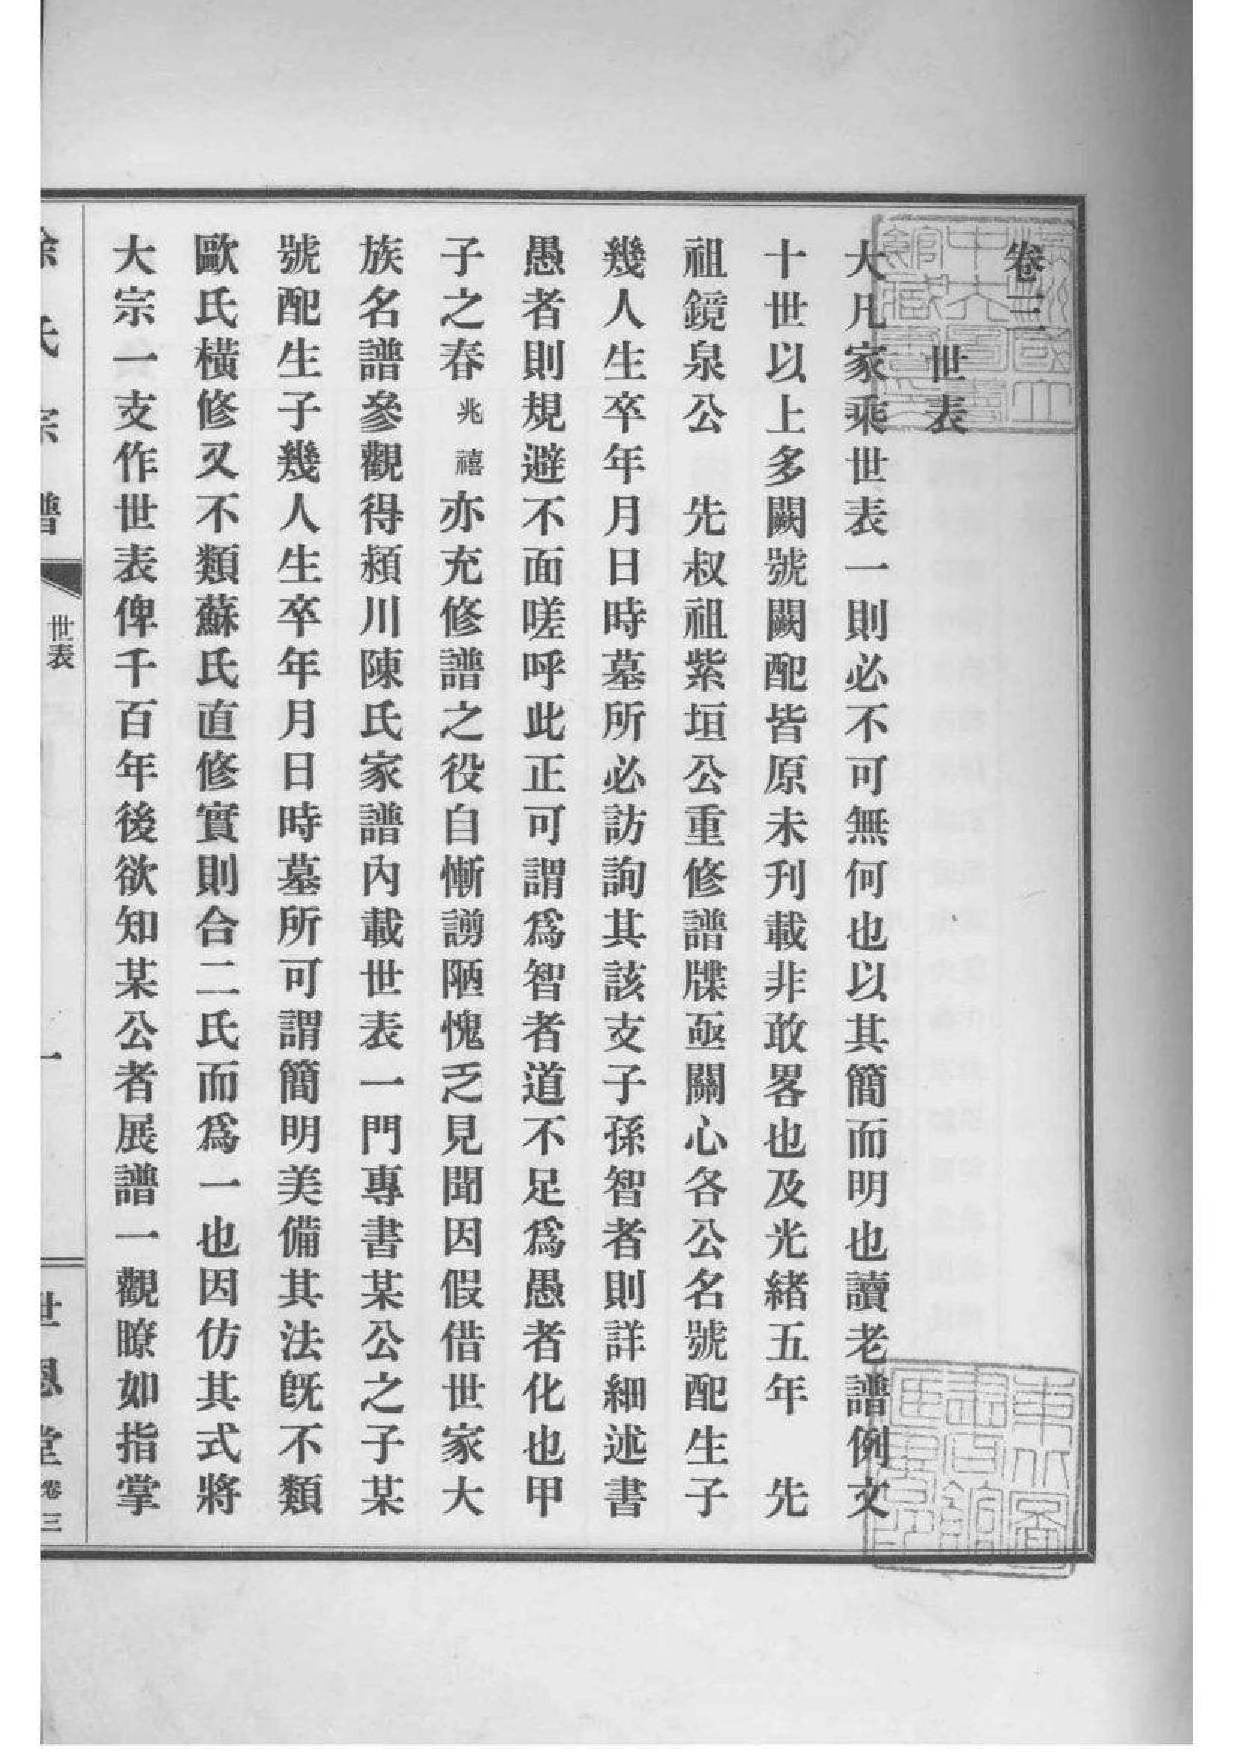 卷三
世表
大凡家乘世表一則必不可無何也以其簡而明也讀老譜例文
十世以上多闕號闕配皆原未刋載非敢畧也及光緒五年　先
祖鏡泉公　先叔祖紫垣公重修譜牒亟關心各公名號配生子
幾人生卒年月日時墓所必訪詢其該支子孫智者則詳細述書
愚者則規避不面嗟呼此正可謂爲智者道不足爲愚者化也甲
子之春兆禧亦充修譜之役自慚謭陋愧乏見聞因假借世家大
族名譜參觀得潁川陳氏家譜內載世表一門專書某公之子某
號配生子幾人生卒年月日時墓所可謂簡明美備其法旣不類
歐氏橫修又不類蘇氏直修實則合二氏而爲一也因仿其式將
大宗一支作世表俾千百年後欲知某公者展譜一觀瞭如指掌
徐氏宗譜
世表
一
世恩堂
卷三